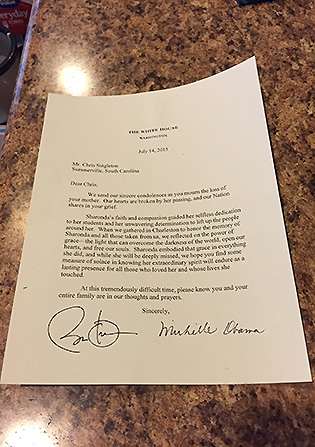 everyday
THE WHITE HOUSE
WASHINGTON
July 14, 2015
Mr. Chris Singleton
Summerville, South Carolina
Dear Chris,
We send our sincere condolences as you mourn the loss of
your mother. Our hearts are broken by her passing, and our Nation
shares in your grief.
Sharonda's faith and compassion guided her selfless dedication
to her students and her unwavering determination to lift up the people
around her. When we gathered in Charleston to honor the memory of
Sharonda and all those taken from us, we reflected on the power of
grace—the light that can overcome the darkness of the world, open our
hearts, and free our souls. Sharonda embodied that grace in everything
she did, and while she will be deeply missed, we hope you find some
measure of solace in knowing her extraordinary spirit will endure as a
lasting presence for all those who loved her and whose lives she
touched.
At this tremendously difficult time, please know you and your
entire family are in our thoughts and prayers.
Sincerely,
Michelle Obama